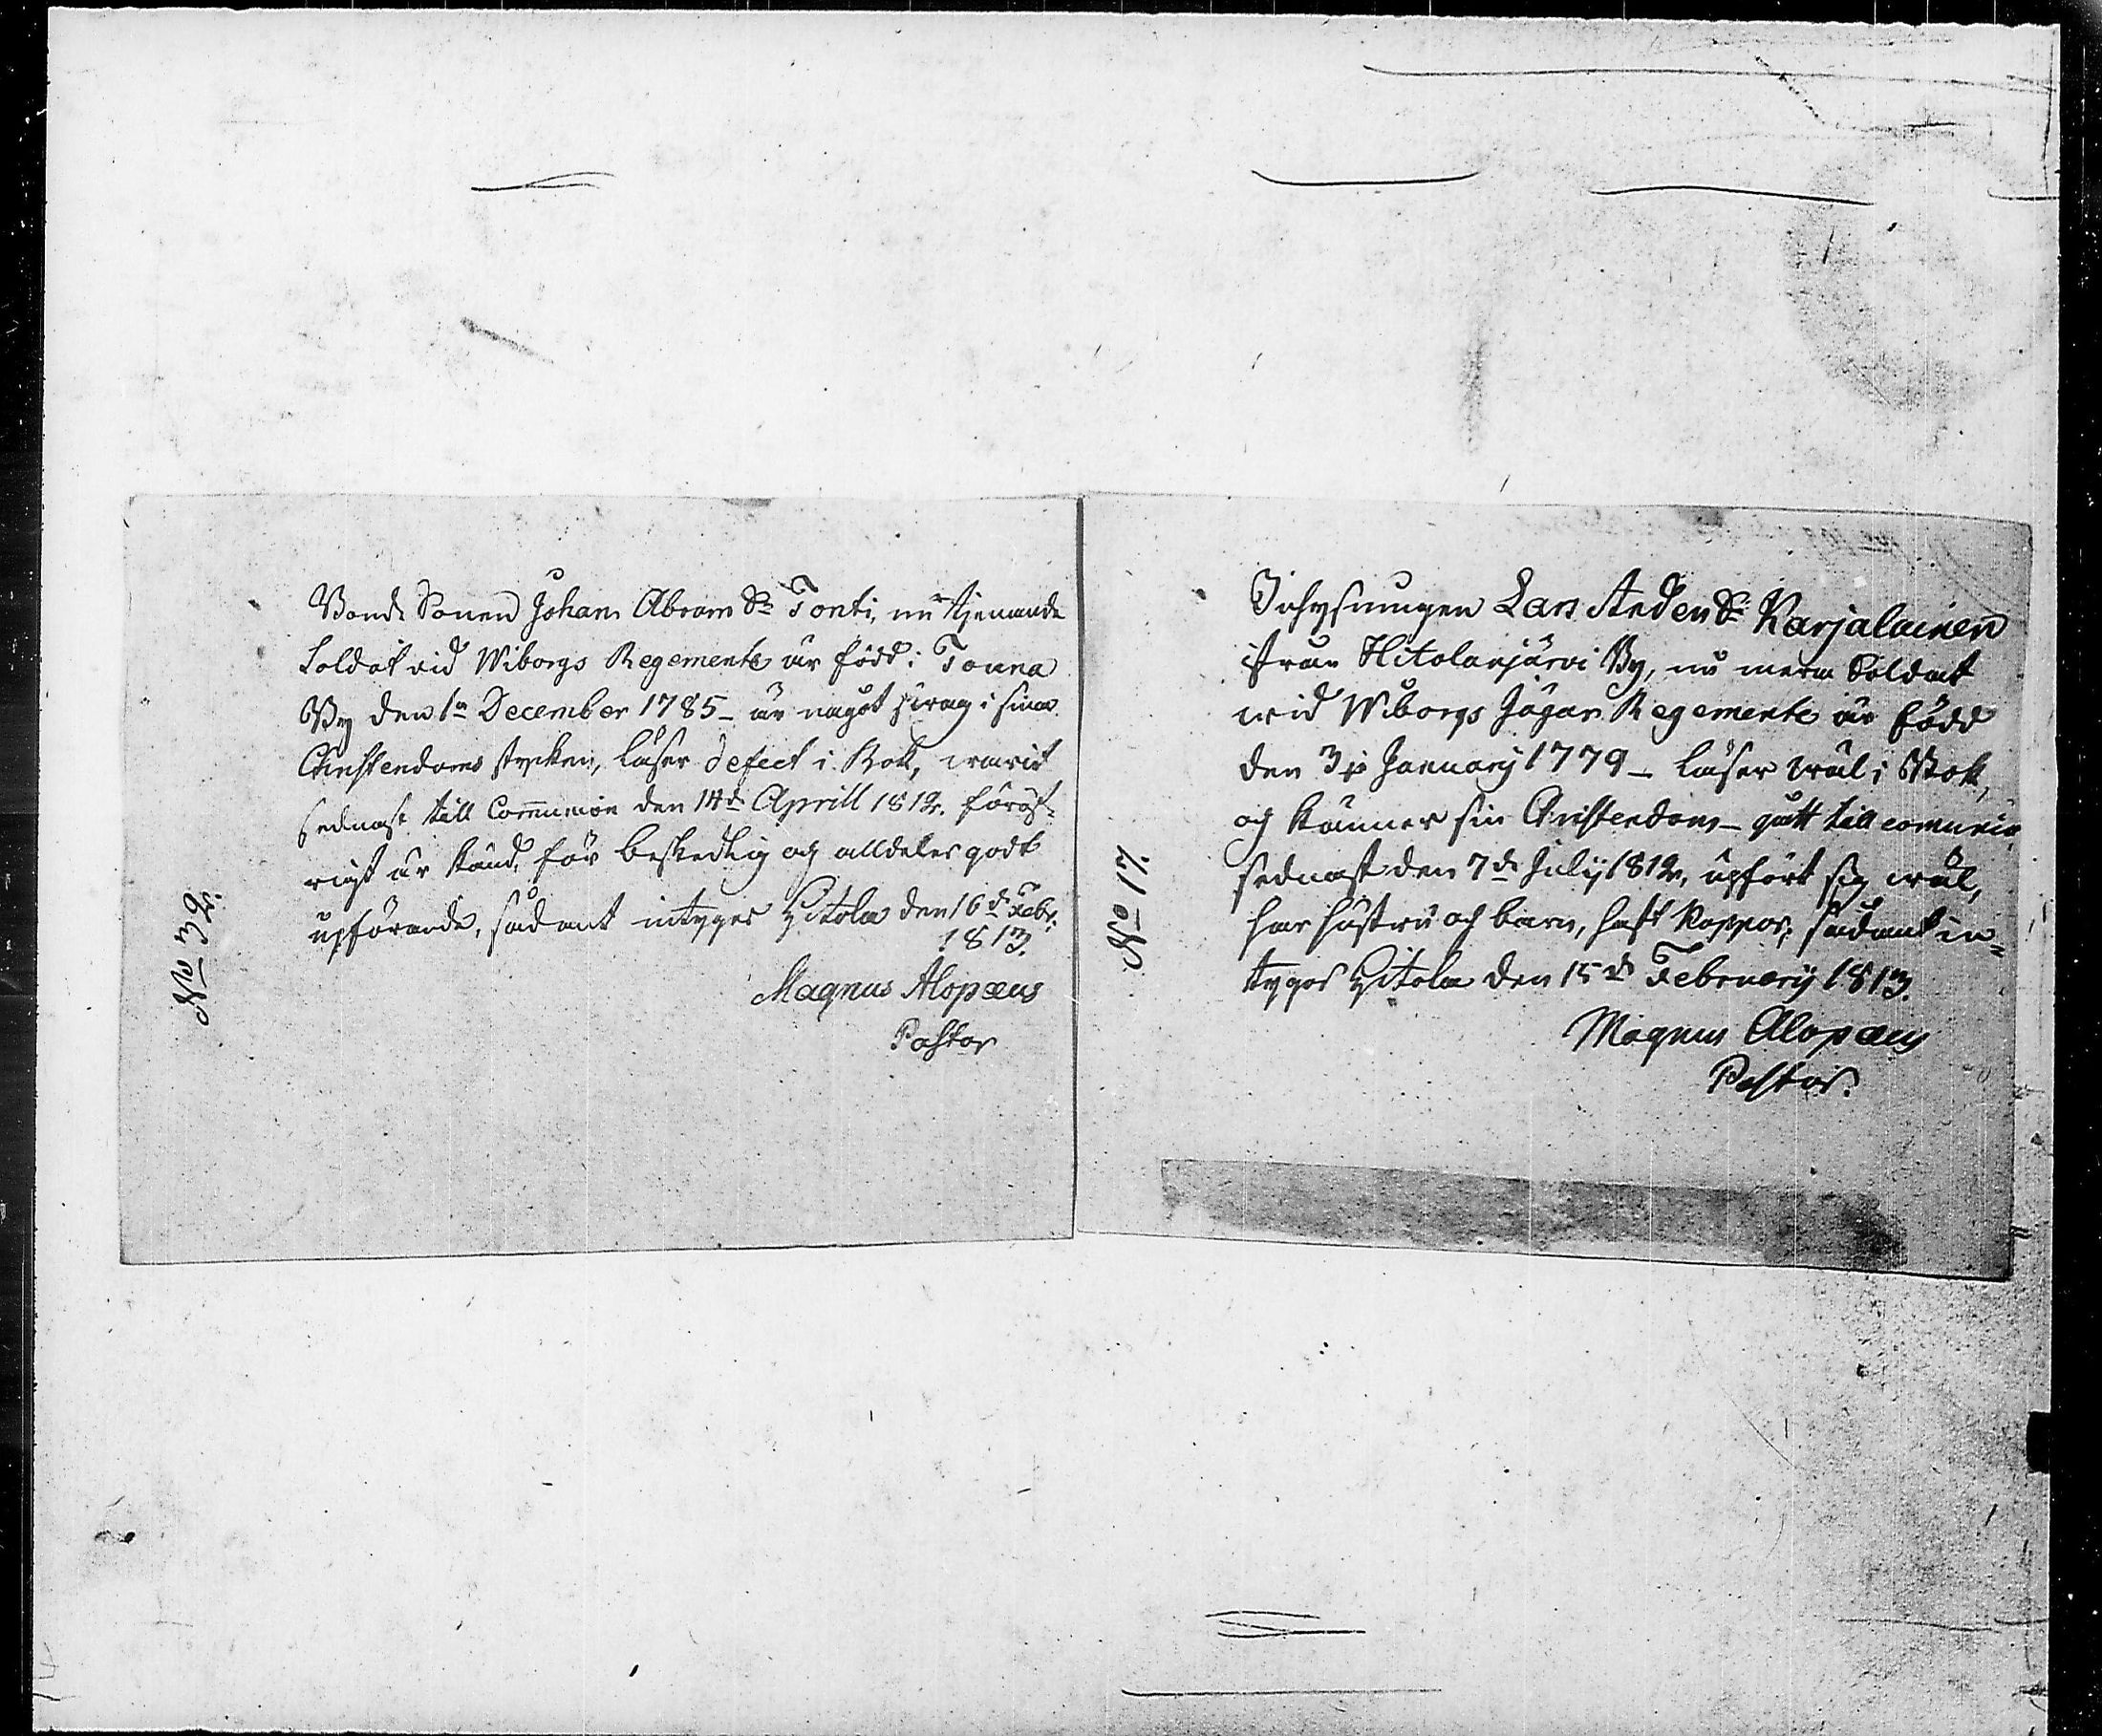 No 32.
Bonde Sonen Johan Abram Sn Tonti, nu tjenande
Soldat vid Wiborgs Regemente är född i Tonna
By den 1a December 1785 - är något swag i sina
Christendoms stycken, läser defect i Bok, warit
sednast till Communion den 14de Aprill 1812. föröf-
rigt är känd för beskedlig och alldeles godt
upförande, sådant intyges Hitola den 16de Febr:
1813.
Magnus Alopæus
Pastor
No 17.
Inhysningen Lars Anders Sn Karjalainen
ifrån Hitolanjärvi By, nu mera Soldat
wid Wiborgs Jägar Regemente är född
den 3je January 1779 - läser wäl i Bok,
och känner sin Christendom - gått till comunion
sednast den 7de July 1812, upfört sig wäl,
har hustru och barn, haft Koppor; sådant in=
tygas Hitola den 15de February 1813.
Magnus Alopæus
Pastor.